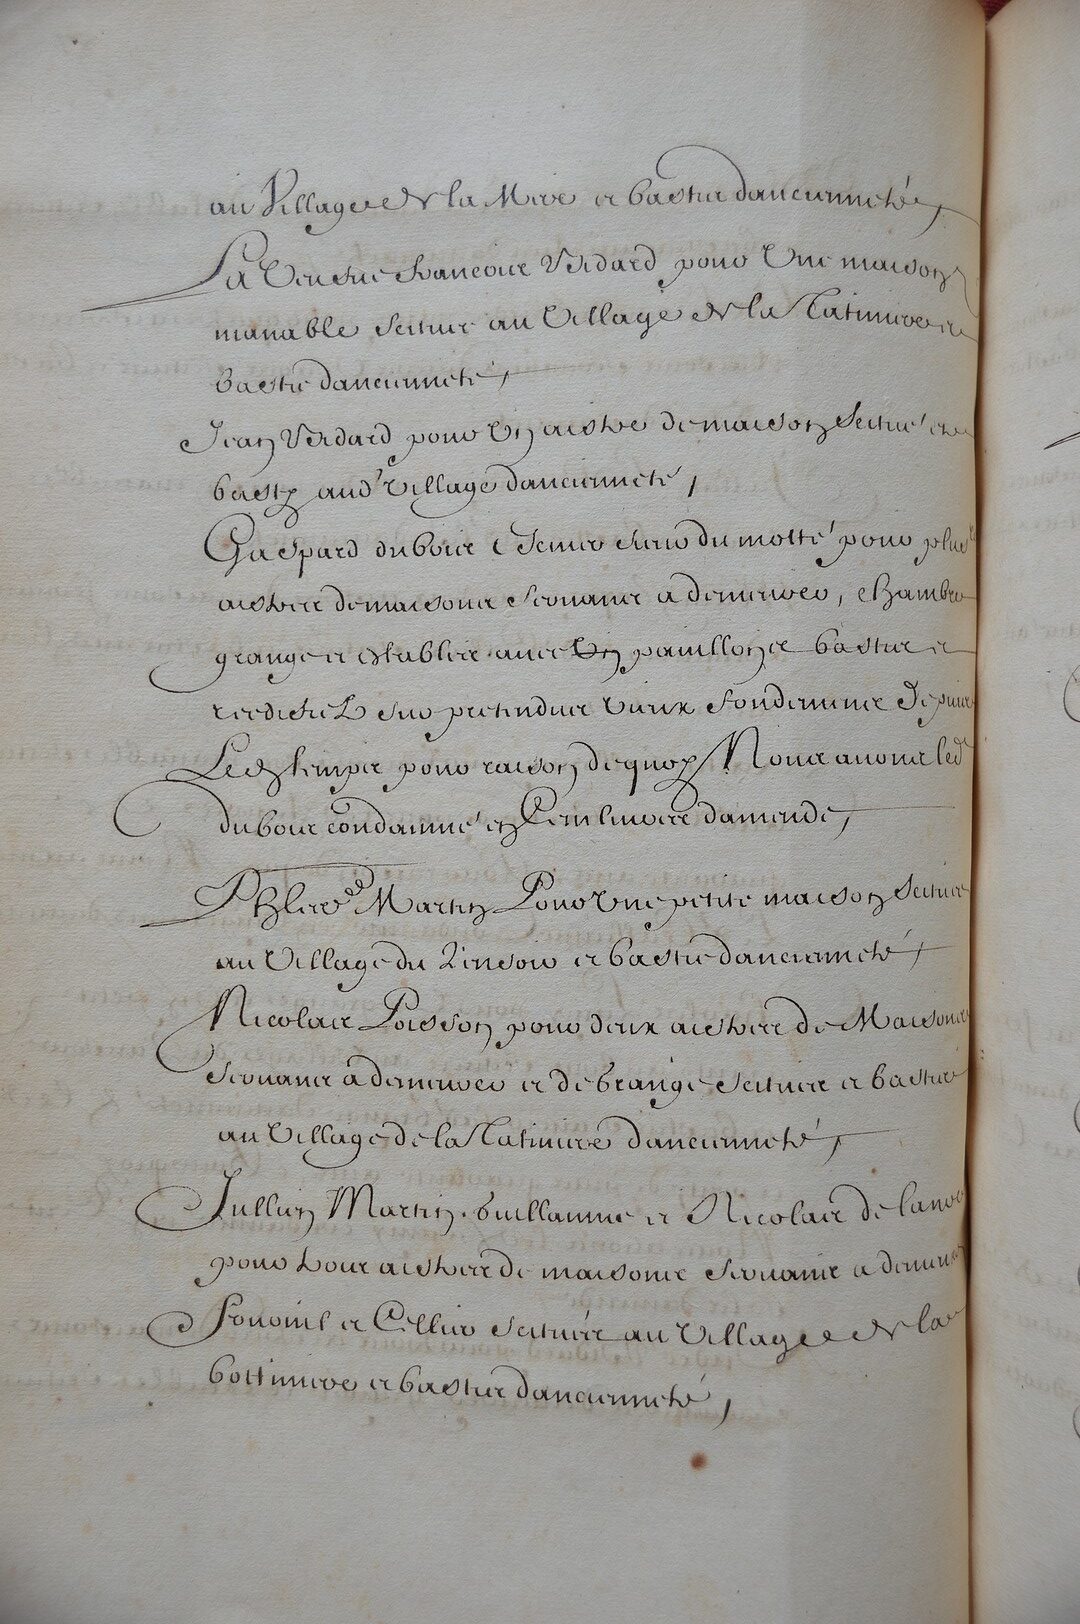 au Village de la Mere et bastie danciennneté,
La Veufue francoise Vedard pour Une maison
manable scituee au Village de la Tatiniere et
bastie dancienneté,
Jean Vedard pour Un aistre de maison scitué et
basty aud Village dancienneté,
Gaspard dubois Escuier sieur du motté pour plus
aistres de maisons seruans a demeurer, chambre
grange et estables auec Un pauillon et bastie et
reediffiez sur pretendues vieux fondemens depuis
Led temps pour raison dequoy Nous auons led
dubois condamné en Cent liures damende,
Phlers Martin Pour Une petite maison scituee
au Village du Rinsoir et bastie dancienneté,
Nicolas Poisson pour deux aistres de Maisons
seruans a demeurer et de grange scituez et bastie
au Village de la Tatiniere dancienneté,
Jullien Martin, Guillaume et Nicolas de lanoe
pour trois aistres de maisons seruans a demeurer
fournil et Cellier scituez au Village de la
bottiniere et bastie dancienneté,